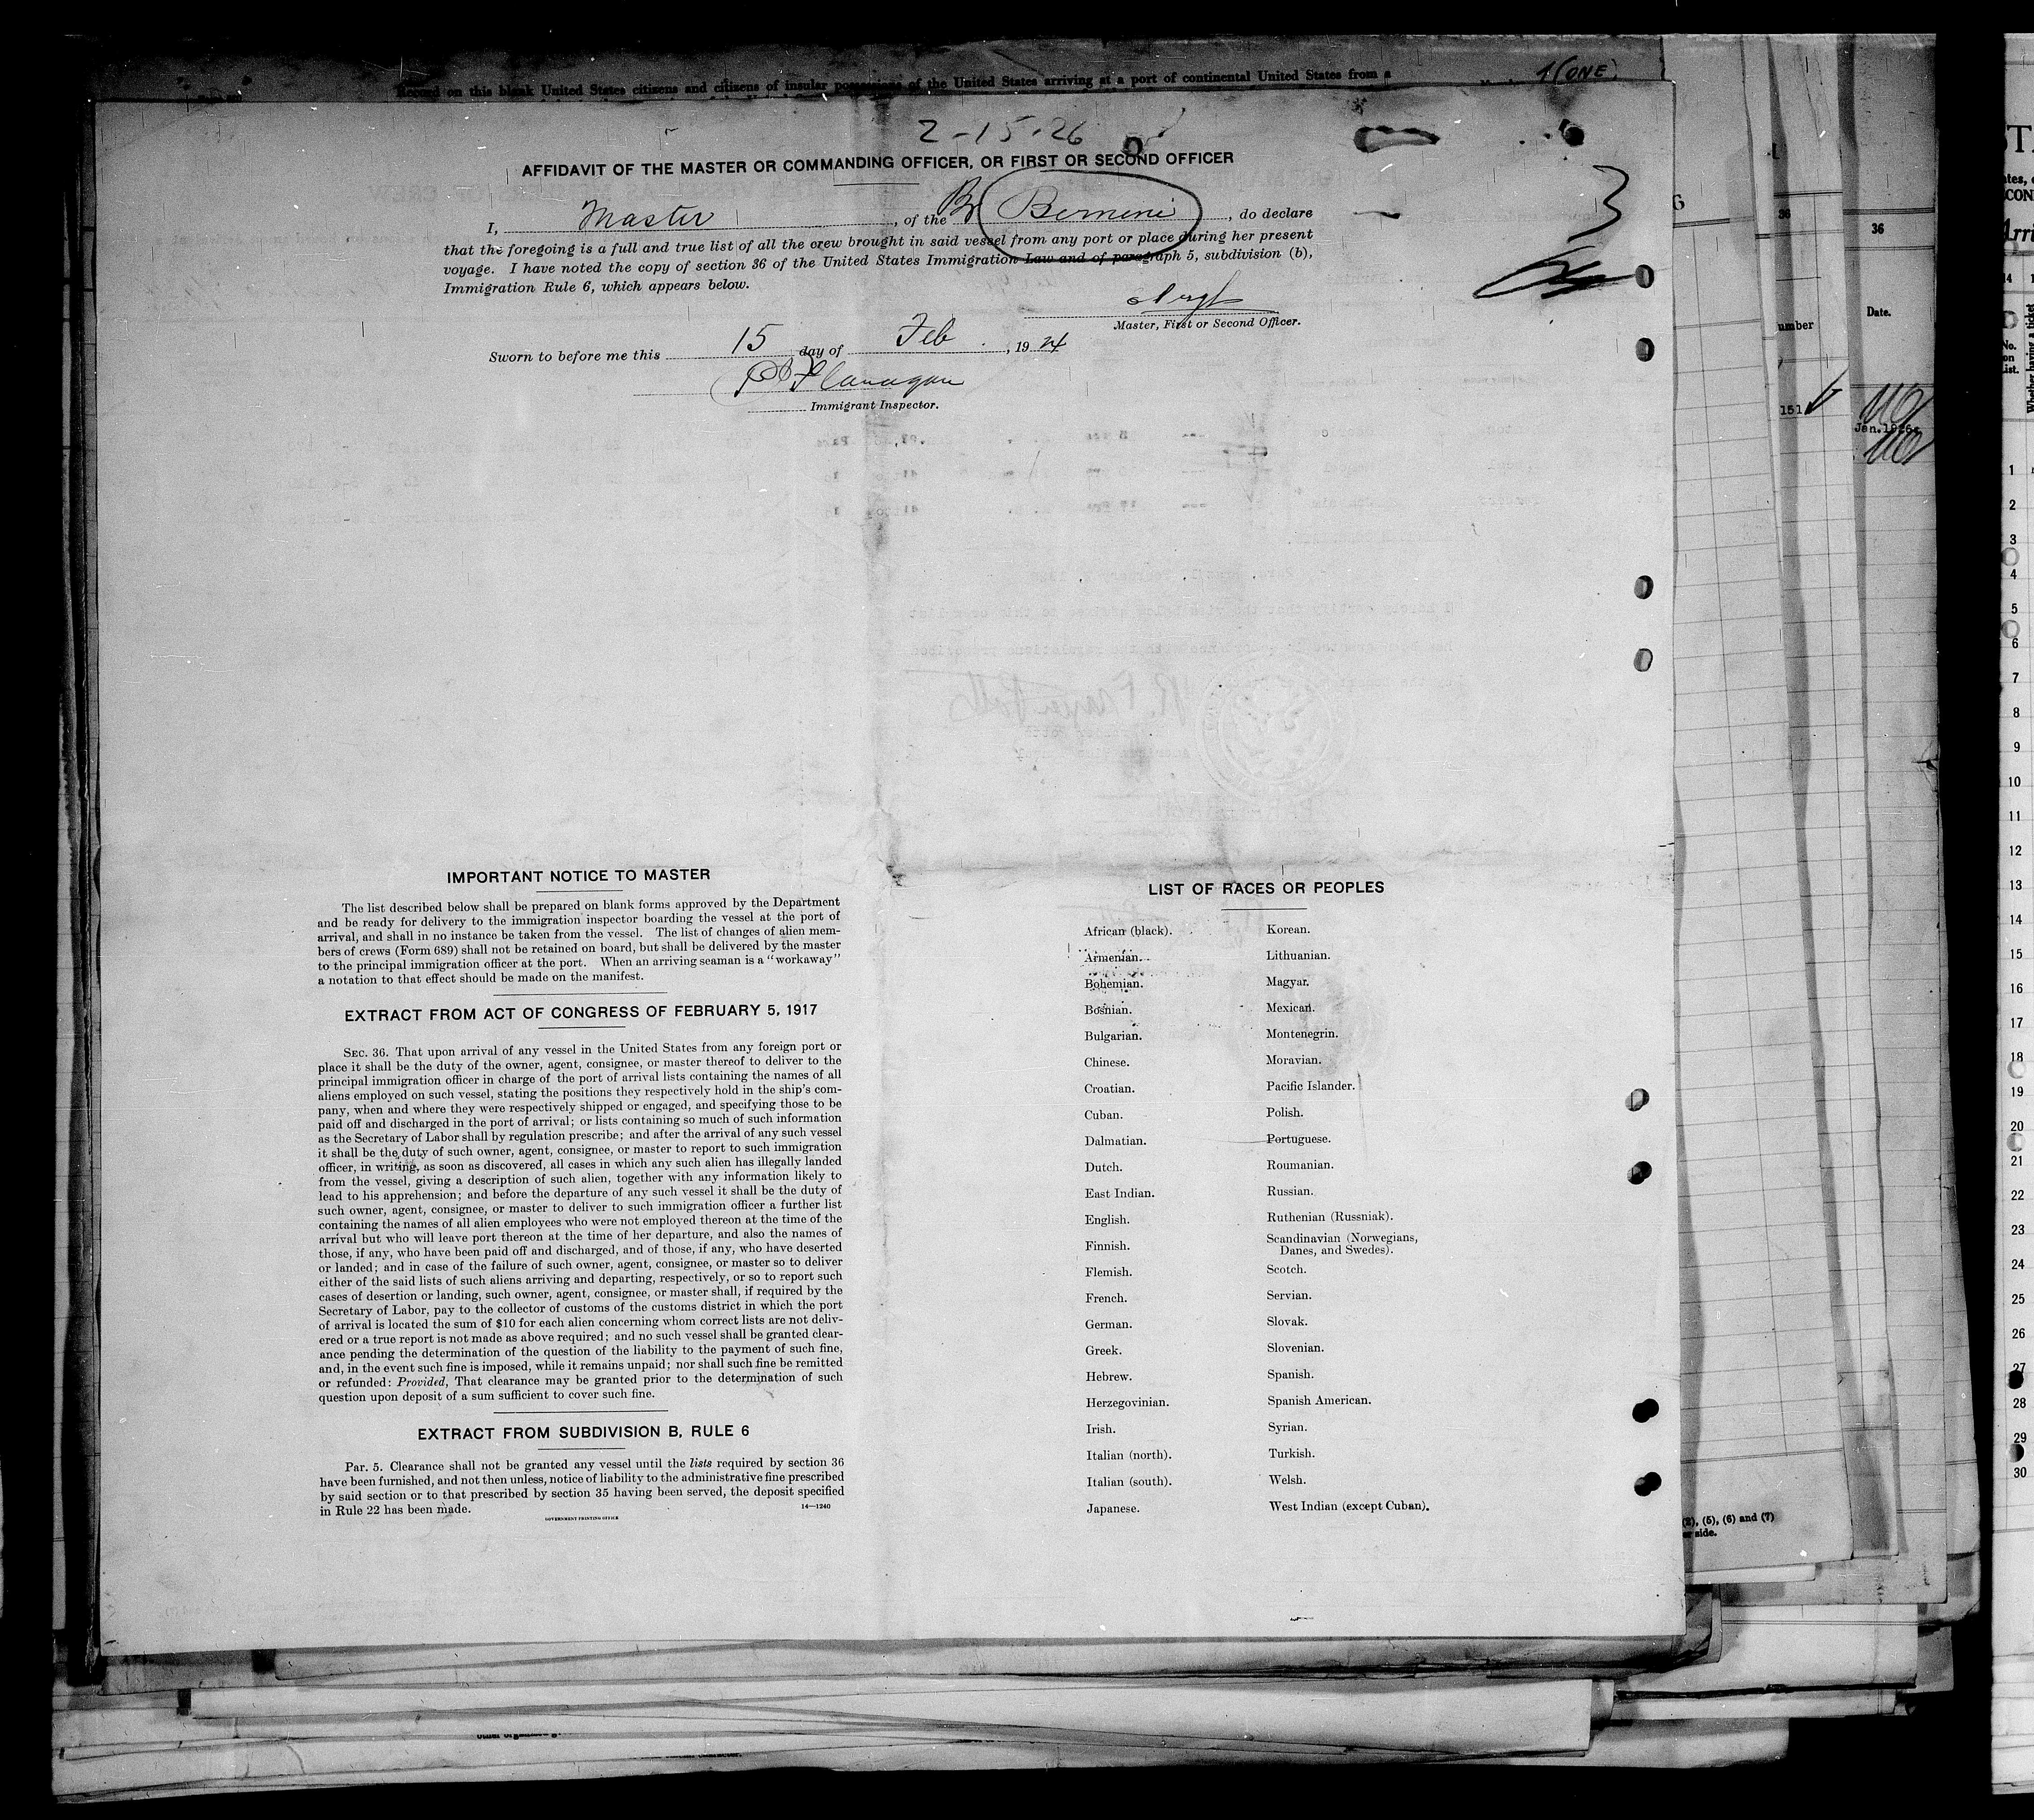 Record on this blank United States citizens and citizens of insular possessions of the United States arriving at a port of continental United States from a
1 (ONE)
2-15-26
AFFIDAVIT OF THE MASTER OR COMMANDING OFFICER, OR FIRST OR SECOND OFFICER
I, Master, of the Br Bernini, do declare
that the foregoing is a full and true list of all the crew brought in said vessel from any port or place during her present
voyage. I have noted the copy of section 36 of the United States Immigration Law and of paragraph 5, subdivision (b),
Immigration Rule 6, which appears below.
Master, First or Second Officer.
Sworn to before me this 15 day of Feb., 19
Flanagan
Immigrant Inspector.
IMPORTANT NOTICE TO MASTER
The list described below shall be prepared on blank forms approved by the Department
and be ready for delivery to the immigration inspector boarding the vessel at the port of
arrival, and shall in no instance be taken from the vessel. The list of changes of alien mem-
bers of crews (Form 689) shall not be retained on board, but shall be delivered by the master
to the principal immigration officer at the port. When an arriving seaman is a "workaway"
a notation to that effect should be made on the manifest.
EXTRACT FROM ACT OF CONGRESS OF FEBRUARY 5, 1917
SEC. 36. That upon arrival of any vessel in the United States from any foreign port or
place it shall be the duty of the owner, agent, consignee, or master thereof to deliver to the
principal immigration officer in charge of the port of arrival lists containing the names of all
aliens employed on such vessel, stating the positions they respectively hold in the ship's com-
pany, when and where they were respectively shipped or engaged, and specifying those to be
paid off and discharged in the port of arrival; or lists containing so much of such information
as the Secretary of Labor shall by regulation prescribe; and after the arrival of any such vessel
it shall be the duty of such owner, agent, consignee, or master to report to such immigration
officer, in writing, as soon as discovered, all cases in which any such alien has illegally landed
from the vessel, giving a description of such alien, together with any information likely to
lead to his apprehension; and before the departure of any such vessel it shall be the duty of
such owner, agent, consignee, or master to deliver to such immigration officer a further list
containing the names of all alien employees who were not employed thereon at the time of the
arrival but who will leave port thereon at the time of her departure, and also the names of
those, if any, who have been paid off and discharged, and of those, if any, who have deserted
or landed; and in case of the failure of such owner, agent, consignee, or master so to deliver
either of the said lists of such aliens arriving and departing, respectively, or so to report such
cases of desertion or landing, such owner, agent, consignee, or master shall, if required by the
Secretary of Labor, pay to the collector of customs of the customs district in which the port
of arrival is located the sum of $10 for each alien concerning whom correct lists are not deliv-
ered or a true report is not made as above required; and no such vessel shall be granted clear-
ance pending the determination of the question of the liability to the payment of such fine,
and, in the event such fine is imposed, while it remains unpaid; nor shall such fine be remitted
or refunded: Provided, That clearance may be granted prior to the determination of such
question upon deposit of a sum sufficient to cover such fine.
EXTRACT FROM SUBDIVISION B, RULE 6
Par. 5. Clearance shall not be granted any vessel until the lists required by section 36
have been furnished, and not then unless, notice of liability to the administrative fine prescribed
by said section or to that prescribed by section 35 having been served, the deposit specified
in Rule 22 has been made.
14—1240
GOVERNMENT PRINTING OFFICE
LIST OF RACES OR PEOPLES
African (black).
Armenian.
Bohemian.
Bosnian.
Bulgarian.
Chinese.
Croatian.
Cuban.
Dalmatian.
Dutch.
East Indian.
English.
Finnish.
Flemish.
French.
German.
Greek.
Hebrew.
Herzegovinian.
Irish.
Italian (north).
Italian (south).
Japanese.
Korean.
Lithuanian.
Magyar.
Mexican.
Montenegrin.
Moravian.
Pacific Islander.
Polish.
Portuguese.
Roumanian.
Russian.
Ruthenian (Russniak).
Scandinavian (Norwegians,
Danes, and Swedes).
Scotch.
Servian.
Slovak.
Slovenian.
Spanish.
Spanish American.
Syrian.
Turkish.
Welsh.
West Indian (except Cuban).
36
umber
151
36
Date.
(2), (5), (6) and (7)
er side.
No.
on
List.
Whether having a ticket
1
2
3
4
5
6
7
8
9
10
11
12
13
14
15
16
17
18
19
20
21
22
23
24
25
26
27
28
29
30